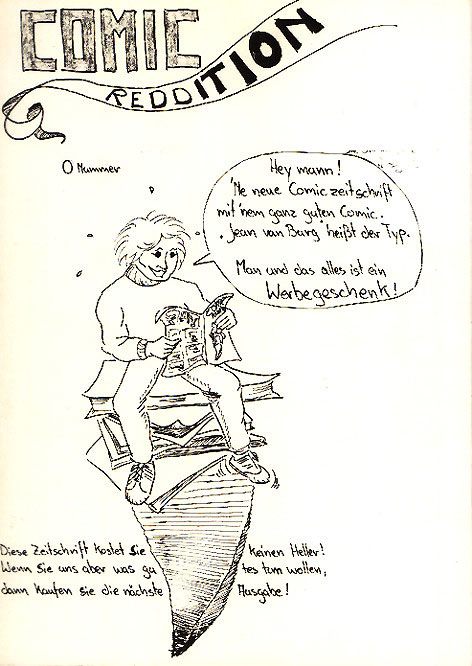 COMIC
REDDITION
0 Nummer
Hey mann!
'Ne neue Comiczeitschrift
mit'nem ganz guten Comic.
Jean van Burg heißt der Typ.
Man und das alles ist ein
Werbegeschenk!
Diese Zeitschrift kostet Sie keinen Heller!
Wenn Sie uns aber was gu tes tum wollen,
dann kaufen sie die nächste Ausgabe!